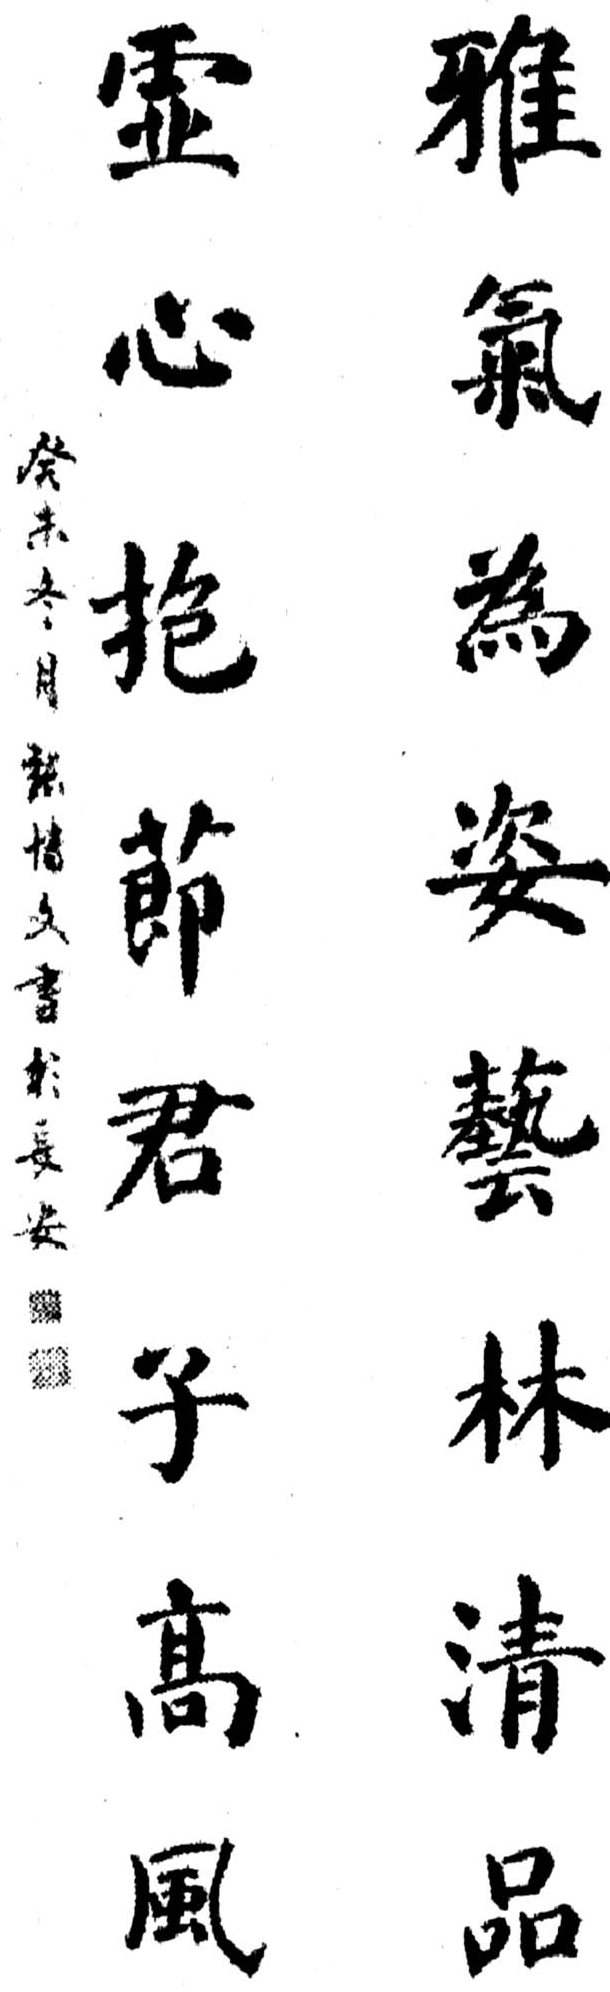 雅氣為姿藝林清品
霊心抱節君子高風
癸未冬月博文書於長安